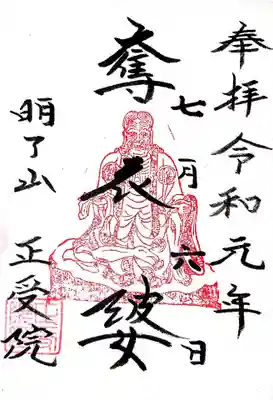 奉拝令和元年
七月六日
奪衣婆
明了山
正受院